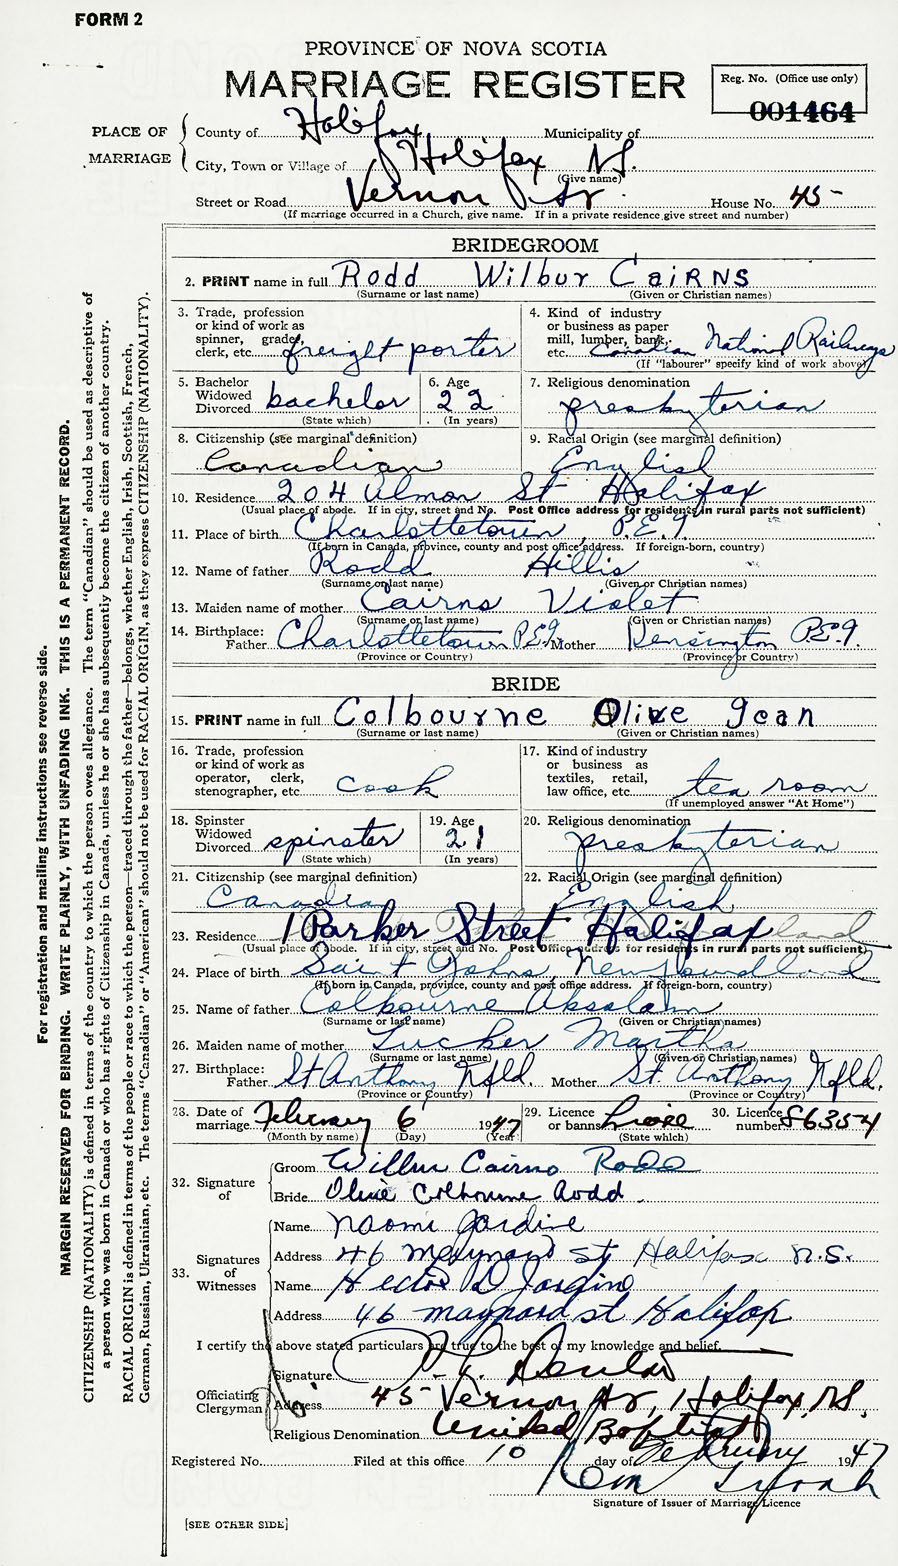 FORM 2
PROVINCE OF NOVA SCOTIA
MARRIAGE REGISTER
Reg. No. (Office use only)
001464
PLACE OF MARRIAGE
County of Halifax Municipality of
City, Town or Village of Halifax N.S.
(Give name)
Street or Road Vernon St. House No. 45-
(If marriage occurred in a Church, give name. If in a private residence give street and number)
BRIDEGROOM
2. PRINT name in full Rodd Wilbur CAIRNS
(Surname or last name) (Given or Christian names)
3. Trade, profession or kind of work as spinner, grader, clerk, etc. freight porter
4. Kind of industry or business as paper mill, lumber, bank, etc. Canadian National Railways
(If "labourer" specify kind of work above)
5. Bachelor Widowed Divorced bachelor
(State which)
6. Age 22
(In years)
7. Religious denomination presbyterian
8. Citizenship (see marginal definition) Canadian
9. Racial Origin (see marginal definition) English
10. Residence 204 Almon St Halifax
(Usual place of abode. If in city, street and No. Post Office address for residents in rural parts not sufficient)
11. Place of birth Charlottetown, P.E.I.
(If born in Canada, province, county and post office address. If foreign-born, country)
12. Name of father Rodd Hillis
(Surname or last name) (Given or Christian names)
13. Maiden name of mother Cairns Violet
(Surname or last name) (Given or Christian names)
14. Birthplace: Father Charlottetown P.E.I. Mother Kensington P.E.I.
(Province or Country) (Province or Country)
BRIDE
15. PRINT name in full Colbourne Olive Jean
(Surname or last name) (Given or Christian names)
16. Trade, profession or kind of work as operator, clerk, stenographer, etc. cook
17. Kind of industry or business as textiles, retail, law office, etc. tea room
(If unemployed answer "At Home")
18. Spinster Widowed Divorced spinster
(State which)
19. Age 21
(In years)
20. Religious denomination presbyterian
21. Citizenship (see marginal definition) Canadian
22. Racial Origin (see marginal definition) English
23. Residence 1 Parker Street Halifax
(Usual place of abode. If in city, street and No. Post Office address for residents in rural parts not sufficient)
24. Place of birth Saint Johns, Newfoundland
(If born in Canada, province, county and post office address. If foreign-born, country)
25. Name of father Colbourne Absolom
(Surname or last name) (Given or Christian names)
26. Maiden name of mother Tucker Martha
(Surname or last name) (Given or Christian names)
27. Birthplace: Father St Anthony Nfld. Mother St. Anthony Nfld.
(Province or Country) (Province or Country)
28. Date of marriage February 6 1947
(Month by name) (Day) (Year)
29. Licence or banns
(State which)
30. Licence number 86354
32. Signature of
Groom Wilbur Cairns Rodd
Bride Olive Colbourne Rodd.
33. Signatures of Witnesses
Name Naomi Jardine
Address 46 Maynard St Halifax N.S.
Name Hector D Jardine
Address 46 maynard st Halifax
I certify the above stated particulars are true to the best of my knowledge and belief.
Officiating Clergyman
Signature
Address 45 Vernon St, Halifax, N.S.
Religious Denomination United Baptist
Registered No. Filed at this office 10 day of February 1947
Signature of Issuer of Marriage Licence
[SEE OTHER SIDE]
For registration and mailing instructions see reverse side.
MARGIN RESERVED FOR BINDING. WRITE PLAINLY, WITH UNFADING INK. THIS IS A PERMANENT RECORD.
CITIZENSHIP (NATIONALITY) is defined in terms of the country to which the person owes allegiance. The term "Canadian" should be used as descriptive of
a person who was born in Canada or who has rights of Citizenship in Canada, unless he or she has subsequently become the citizen of another country.
RACIAL ORIGIN is defined in terms of the people or race to which the person—traced through the father—belongs, whether English, Irish, Scottish, French,
German, Russian, Ukrainian, etc. The terms "Canadian" or "American" should not be used for RACIAL ORIGIN, as they express CITIZENSHIP (NATIONALITY).